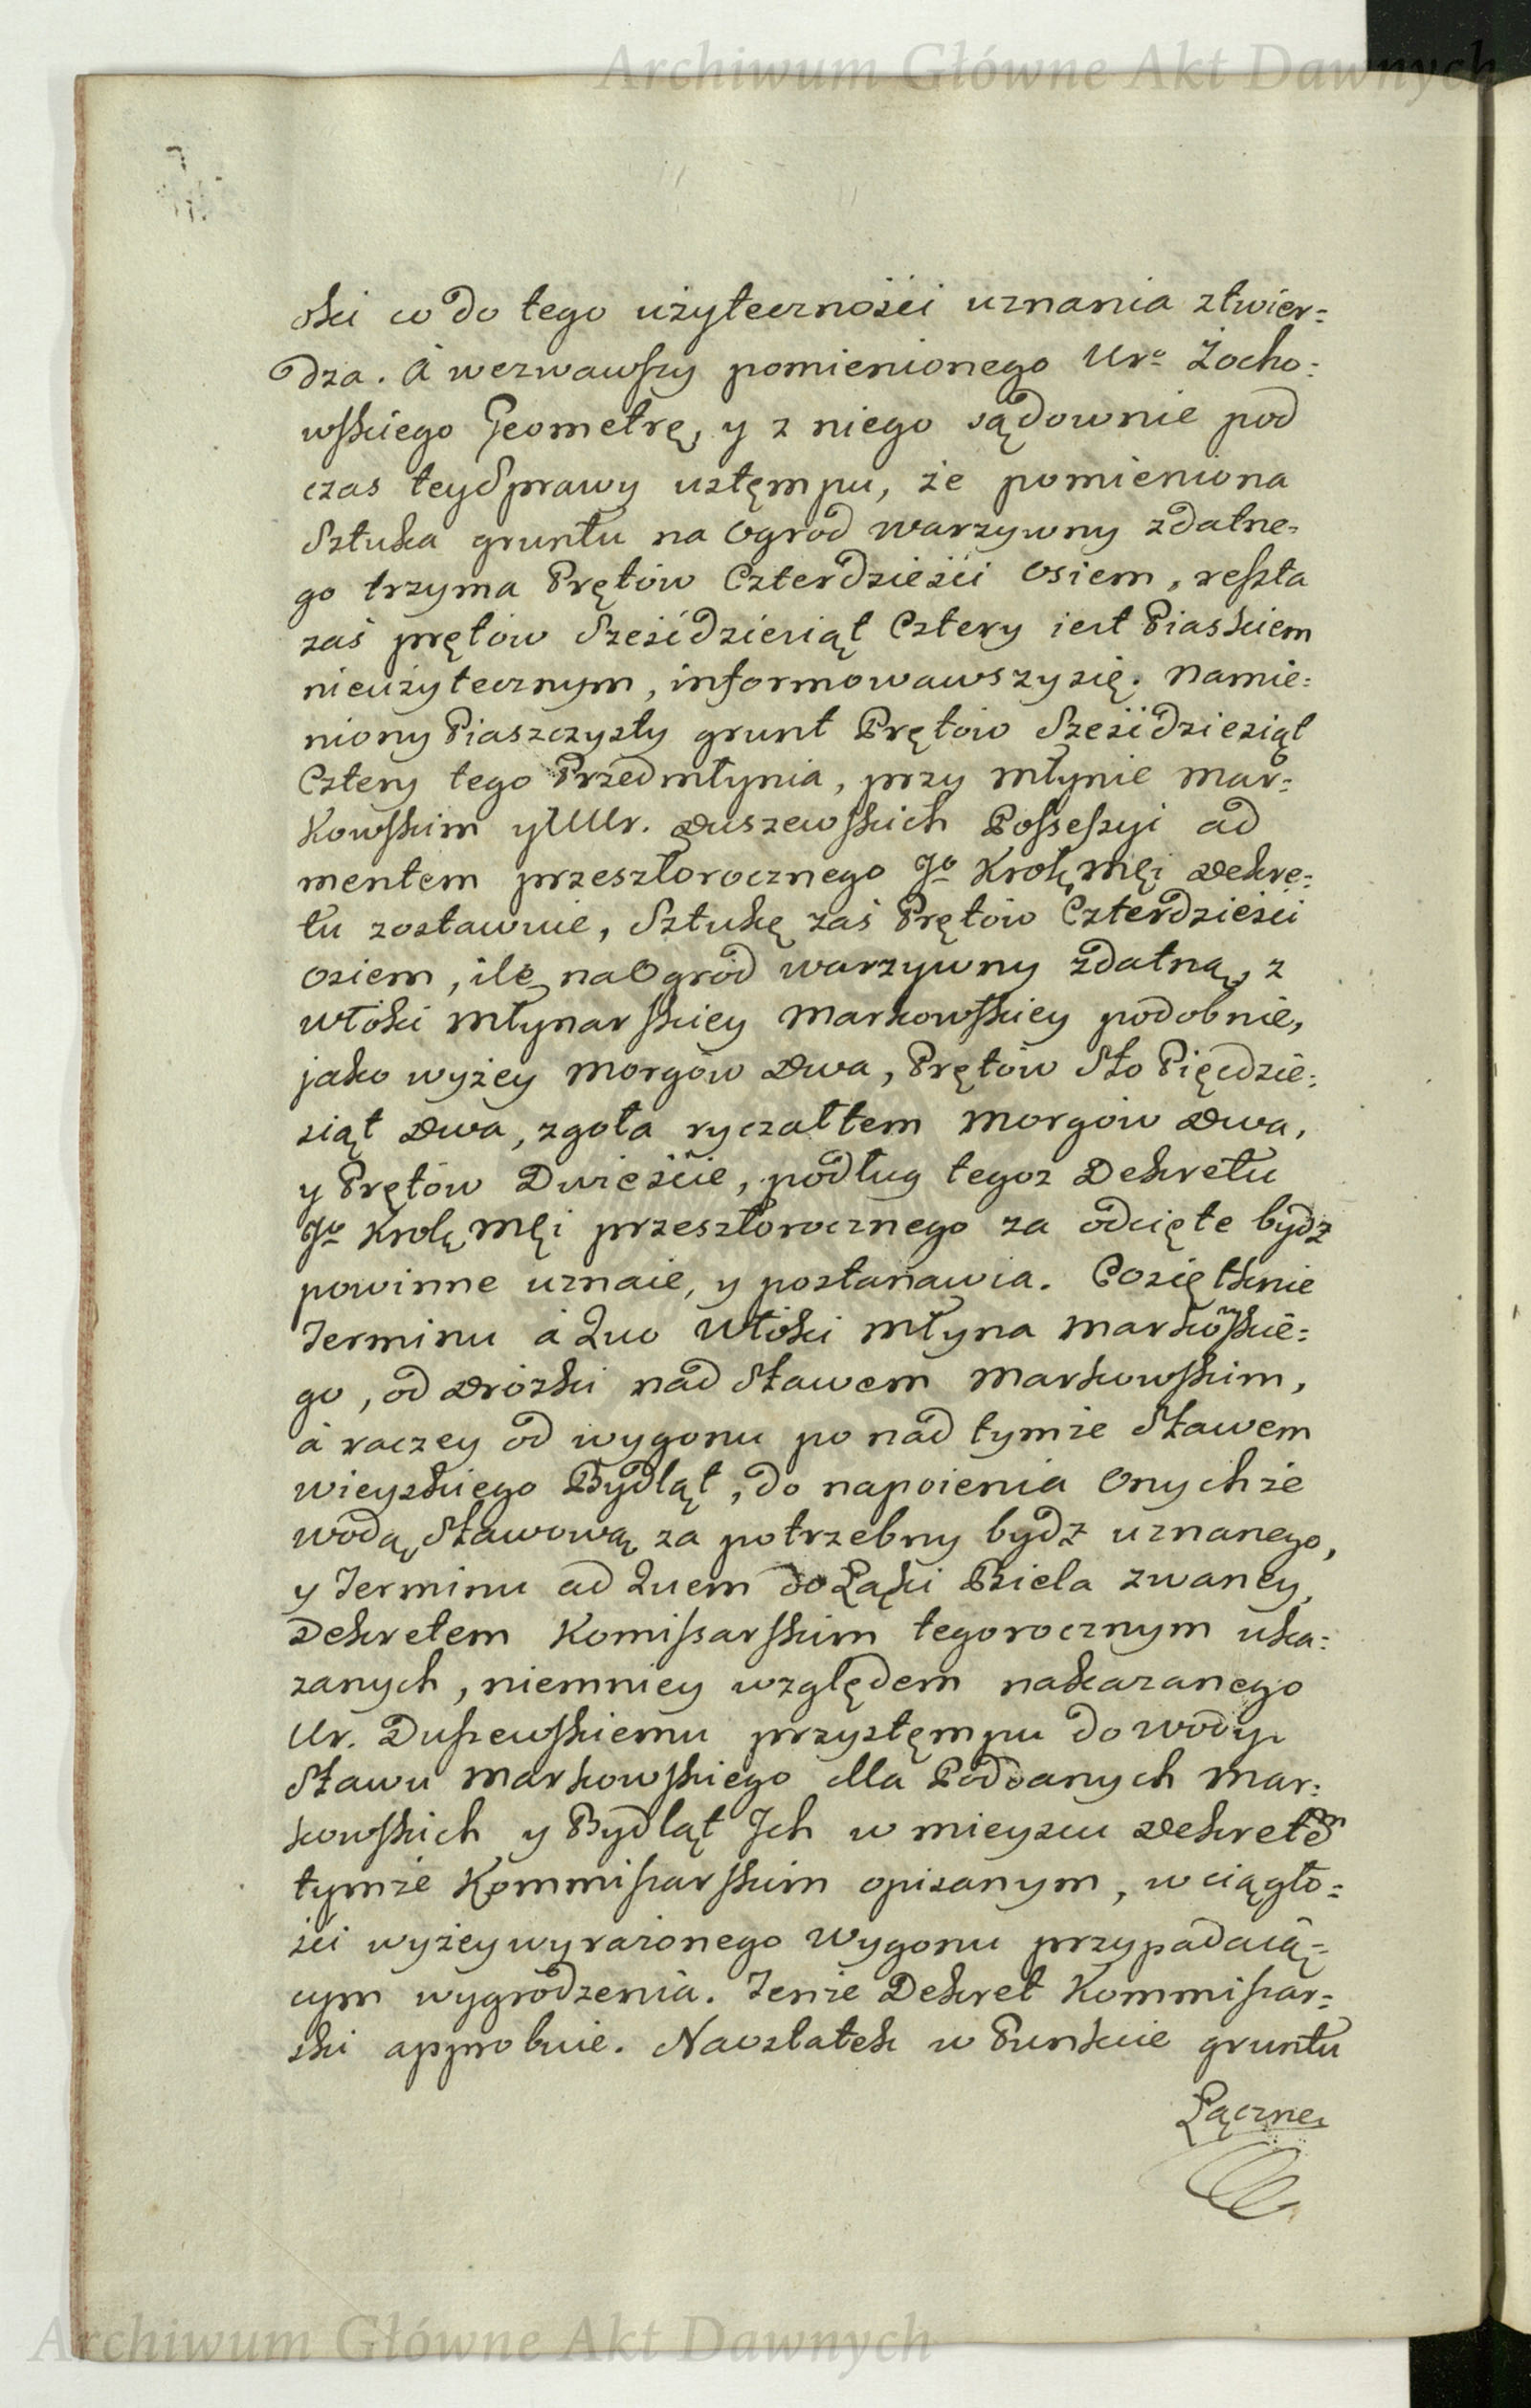 Archiwum Główne Akt Dawnych
ski co do tego użyteczności uznania ztwier=
dza. A wezwawszy pomienionego Uro Żocho=
wskiego Geometrę, y z niego sądownie pod
czas tey Sprawy ustęmpu, że pomieniona
Sztuka gruntu na Ogród warzywny zdatne=
go trzyma Prętów Czterdzieści Osiem, reszta
zaś prętów Sześćdziesiąt Cztery iest Piaskiem
nieużytecznym, informowawszy się. Namie=
niony Piaszczysty grunt Prętów Sześćdziesiąt
Cztery tego Przedmłynia, przy Młynie Mar=
kowskim y UUr. Duszewskich Possessyi ad
mentem przeszłorocznego Jo Krolę Mći Dekre=
tu zostawuie, Sztukę zaś Prętów Czterdzieści
Osiem, ile na Ogród warzywny zdatną, z
Włóki Młynarskiey Markowskiey podobnie,
jako wyżey Morgów Dwa, Prętów Sto Pięcdzie=
siąt Dwa, zgoła ryczałtem Morgów Dwa,
y Prętów Dwieście, podług tegoz Dekretu
Jo Krolę Mći przeszłorocznego za odcięte bydz
powinne uznaie, y postanawia. Co się tknie
Terminu à Quo Włóki Młyna Markowskie=
go, od Drózki nad Stawem Markowskim,
á raczey od wygonu po nad tymże Stawem
wieyskiego Bydląt, do napoienia Onychże
wodą Stawową za potrzebny bydz uznanego,
y Terminu ad Quem do Łąki Biela zwaney,
Dekretem Komissarskim tegorocznym uka=
zanych, niemniey względem nakazanego
Ur. Duszewskiemu przystęmpu do wody
Stawu Markowskiego dla Poddanych Mar=
kowskich y Bydląt Ich w mieyscu Dekretem
tymże Kommissarskim opisanym, w ciągło=
ści wyżey wyrażonego Wygonu przypadaią=
cym wygrodzenia. Tenże Dekret Kommissar=
ski approbuie. Naostatek w Punkcie gruntu
Łączne
Archiwum Główne Akt Dawnych